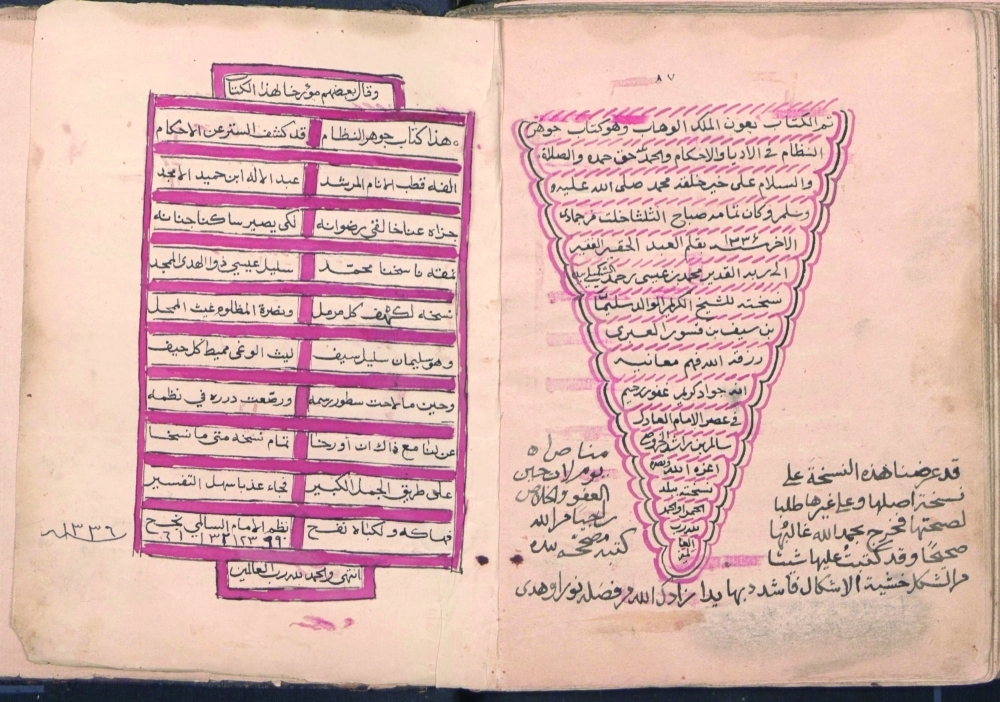 ٨٧
تم الكتاب بعون الملك الوهاب وهو كتاب جوهر
النظام في الأديا والاحكام والحمد لله حق حمده والصلاة
والسلام على خير خلقه محمد صلى الله عليه و
وسلم وكان تمامه صباح الثلثا خلت من جمادى
الآخر سنة ١٣٣٦ بقلم العبد الحقير الفقير
الى ربه القدير محمد بن عيسى بن حمد
نسخته للشيخ الكريم الوالد سليمان
بن سيف بن قسور العبري
رزقه الله فهم معانيه
انه جواد كريم غفور رحيم
في عصر الامام العادل
سالم بن راشد الخروصي
اعزه الله ونصره
نسخته ببلد
الحمرا والحمد
لله رب
العالمين
قد عرضنا هذه النسخة على
نسخة اصلها وعلى غيرها طلبا
لصحتها فخرج بحمد الله غالبها
صحيحًا وقد كتبت عليها شتتا
من الشكل خشية الاشكال فاشدد بها يدا زادك الله من فضله نورا وهدى
العفو والكرم
راجيا من الله
كتبه مصححه بيده
وقال بعضهم مؤرخا لهذا الكتاب
هذا كتاب جوهر النظام قد كشف الستر عن الاحكام
الفه قطب الانام المرشد عبد الاله ابن حميد الامجد
جزاه عنا خالقي رضوانه لكي يصير ساكنا جنانه
نمقه ناسخنا محمّد سليل عيسى ذو الهدى الممجد
نسخه لكهف كل مرمل ونصرة المظلوم غيث الممحل
وهو سليمان سليل سيف ليث الوغى مميط كل حيف
وحين ما لاحت سطور رسمه ورصّعت درره في نظمه
عن لنا مع ذاك ان أورخا تمام نسخه متى ما نسخا
على طريق الجمل الكبير فجاء عذبا سهل التفسير
فهاكه ولكباه نفح نظم الامام السالمي نجح
١٣٣٦
انتهى والحمد لله رب العالمين